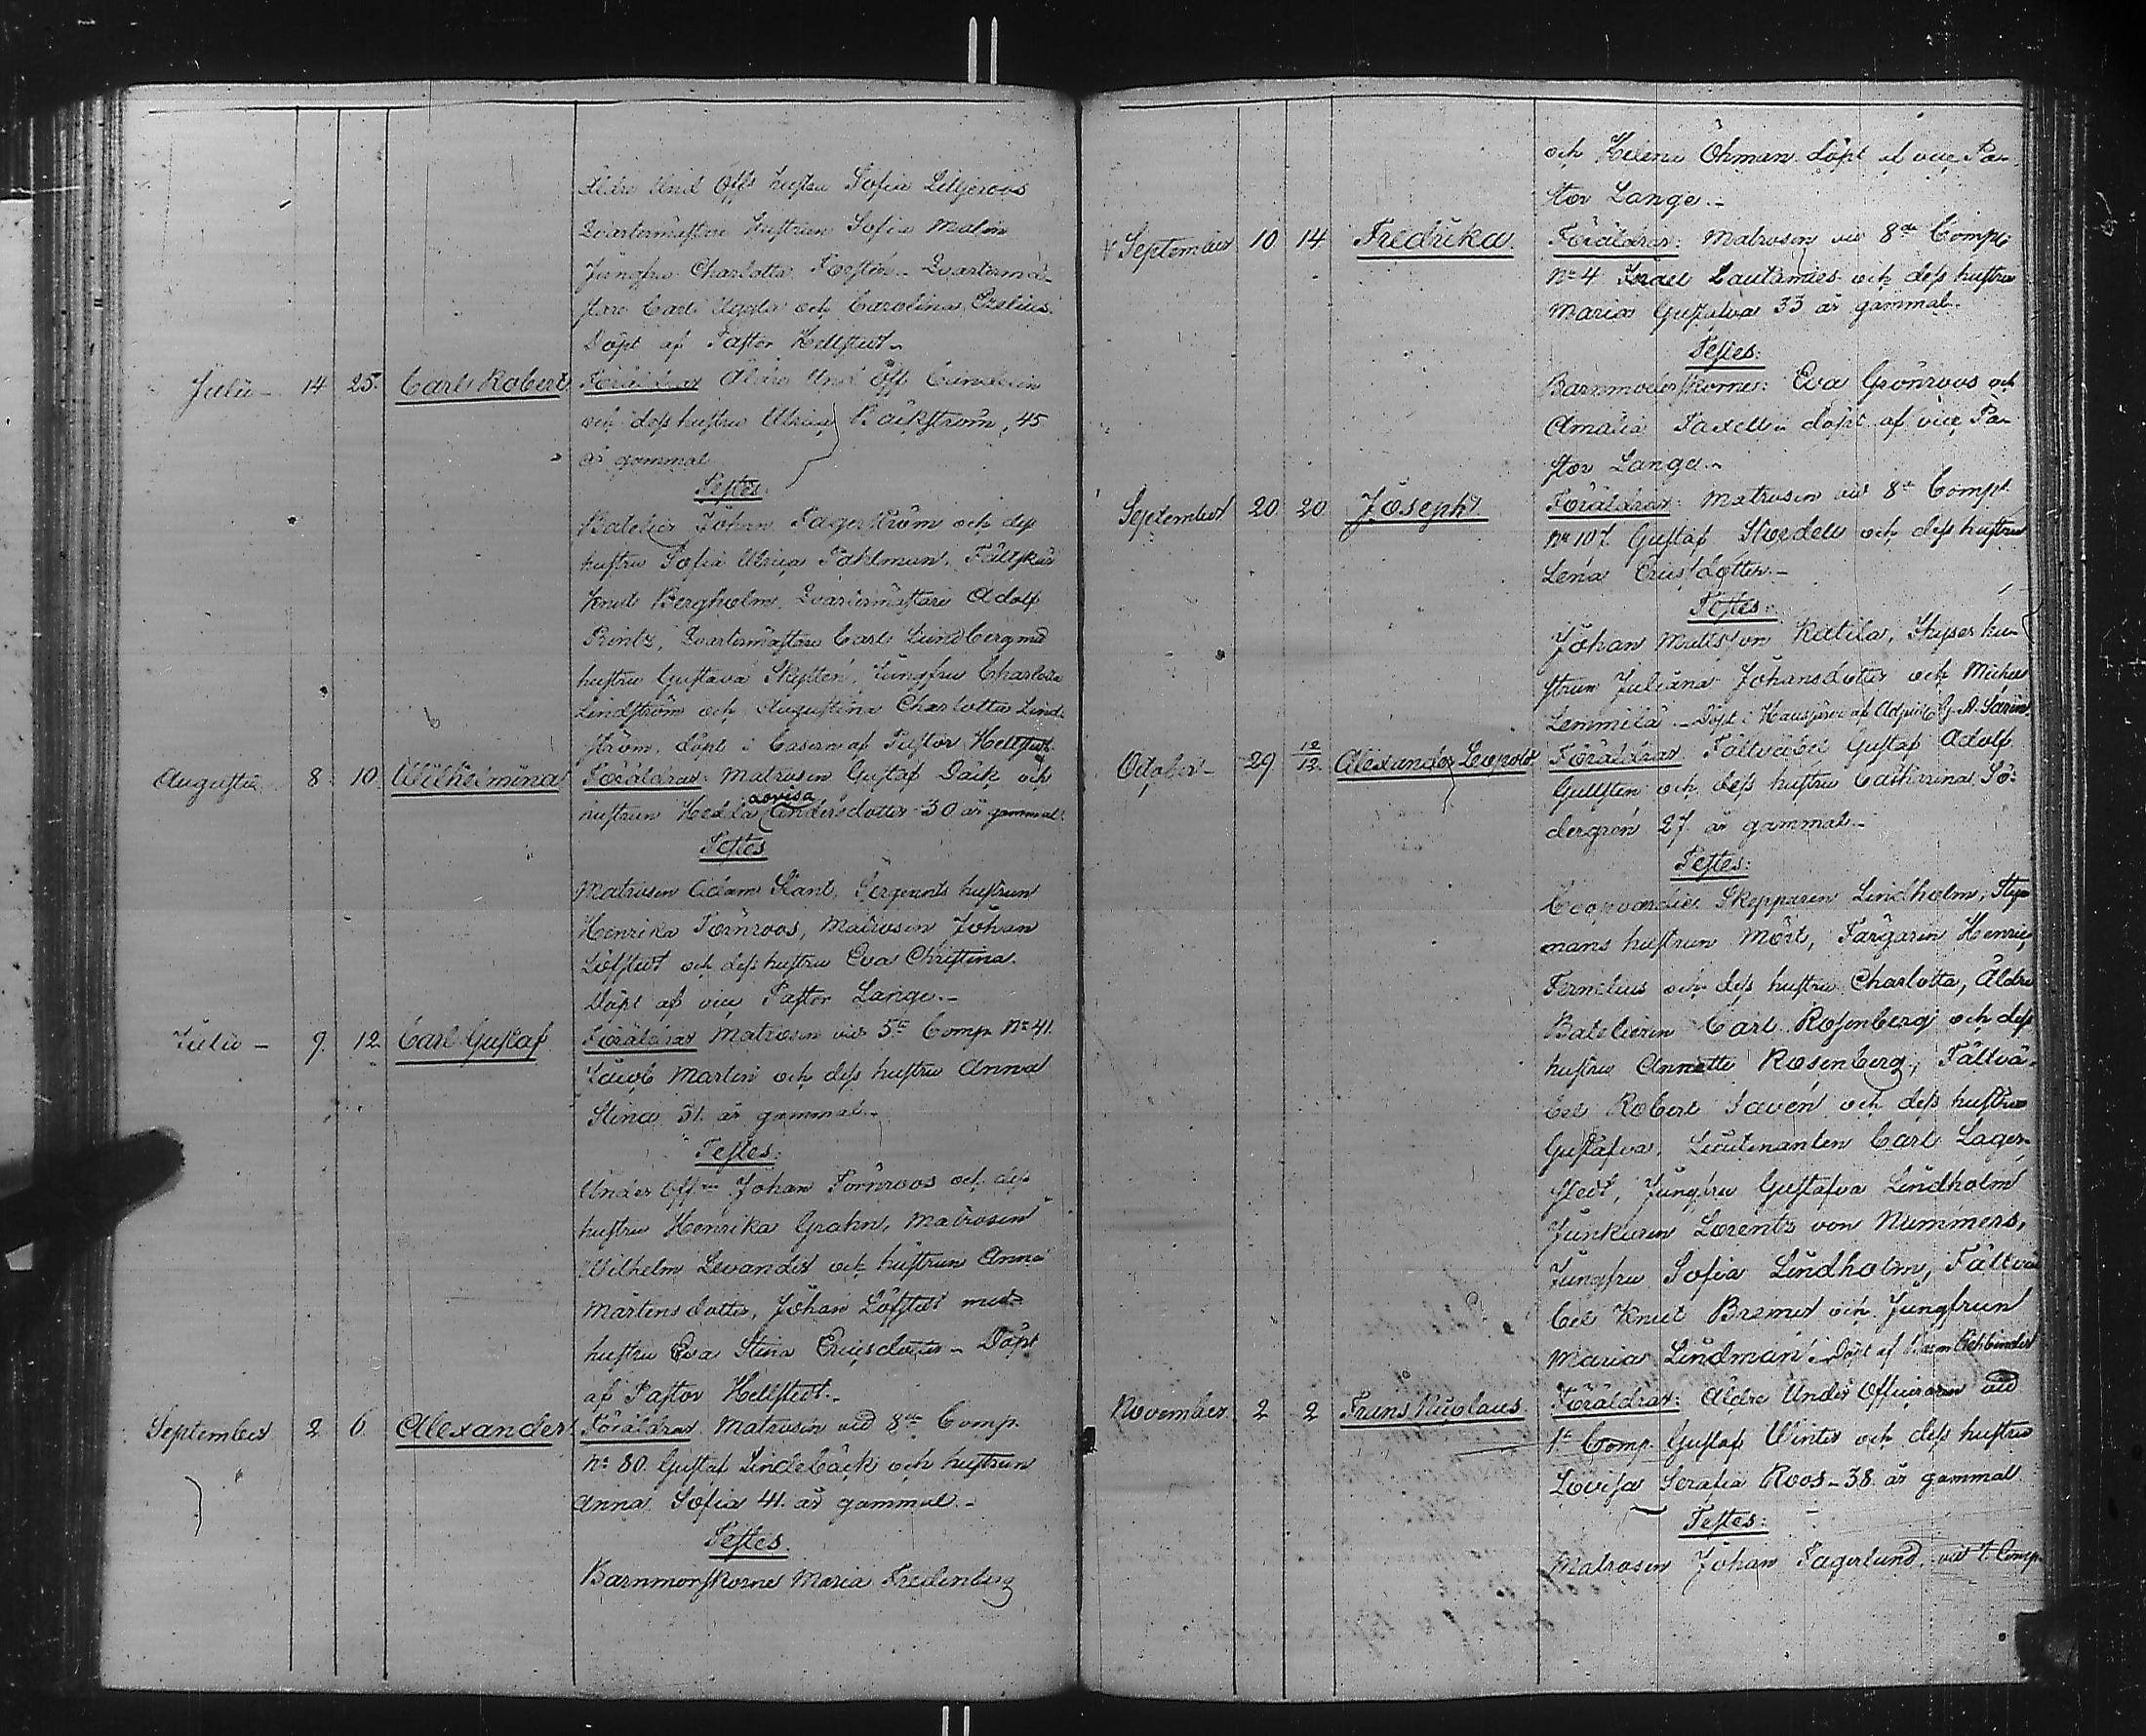 äldre Und Offs hustru Sofia Liljeroos
Qvartermästare Hustrun Sofia Malin
Jungfru Charlotta Qvartermä-
stare Carl Uggla och Carolina
Döpt af Pastor Hellstedt.
Julii - 14 25. Carl Robert Föräldrar Äldre Und Off.
och dess hustru Ulrica Bäckström, 45
år gammal
Testes.
Batelier Johan Fagerström och dess
hustru Sofia Ulrica Dahlman, Fältskär
Knut Bergholm, Qvartermästare Adolf
Printz, Qvartermästare Carl Lundberg med
hustru Gustava Skytten, Jungfru Charlotta
Lindström och Augustina Charlotta Lind-
ström, döpt i Casern af Pastor Hellstedt
Augustii 8 10 Wilhelmina Föräldrar: Matrosen Gustaf Däck och
Lovisa
hustrun Hedda Andersdotter 30 år gammal.
Testes
Matrosen Adam Slant, Sergeants hustrun
Henrika Törnroos, Matrosen Johan
Löfstedt och dess hustru Eva Christina.
Döpt af vice Pastor Lange.-
Julii - 9. 12 Carl Gustaf Föräldrar Matrosen vid 5te Comp. No 41.
Jacob Martin och dess hustru Anna
Stina 31. år gammal.-
Testes:
Under Offrn Johan Törnroos och dess
hustru Henrika Grahn, Matrosen
Wilhelm Levander och hustrun Anna
Mårtensdotter, Johan Löfstedt med
hustru Eva Stina Ericsdotter - Döpt
af Pastor Hellstedt.-
September 2 6 Alexander Föräldrar. Matrosen vid 8de Comp.
No 80. Gustaf Lindebäck och hustrun
Anna Sofia 41. år gammal.-
Testes.
Barnmorskorne Maria Fredenberg
och Helena Öhman döpt af vice Pa-
stor Lange.-
September 10 14 Fredrika. Föräldrar: Matrosen vid 8de Comp:
No 4 Israel Lautamies och dess hustru
Maria Gustafva 33 år gammal.
Testes:
Barnmoderskorne: Eva Grönroos och
Amalia döpt af vice Pa-
stor Lange.-
September 20 20 Joseph Föräldrar: Matrosen vid 8de Comp:
No 107. Gustaf och dess hustru
Lena Ericsdotter.-
Testes:
Johan Mattsson Katila, hu-
strun Juliana Johansdotter och Michel
Lemmilä. - Döpt i af Adj.
October - 29 12/12 Alexander Leopold Föräldrar Fältväbel Gustaf Adolf
Gullsten och dess hustru Catharina Sö-
dergren 27 år gammal.-
Testes:
Coopvardie Skepparen Lindholm, Styr-
mans hustrun Mört, Färgaren Henric
Fernelius och dess hustru Charlotta, Äldre
Batelieren Carl Rosenberg och dess
hustru Annette Rosenberg, Fältvä-
bel Robert Saven och dess hustru
Gustafva, Lieutenanten Carl Lager-
stedt, Jungfru Gustafva Lindholm
Junkaren Lorentz von Nummers,
Jungfru Sofia Lindholm, Fältvä-
bel Knut Bremer och Jungfrun
Maria Lindman. Döpt af
November 2 2 Frans Nicolaus. Föräldrar: Äldre Under Officeraren vid
1e Comp. Gustaf Winter och dess hustru
Lovisa Serafia Roos - 38 år gammal
Testes:
Matrosen Johan Fagerlund. vid 7. Comp.